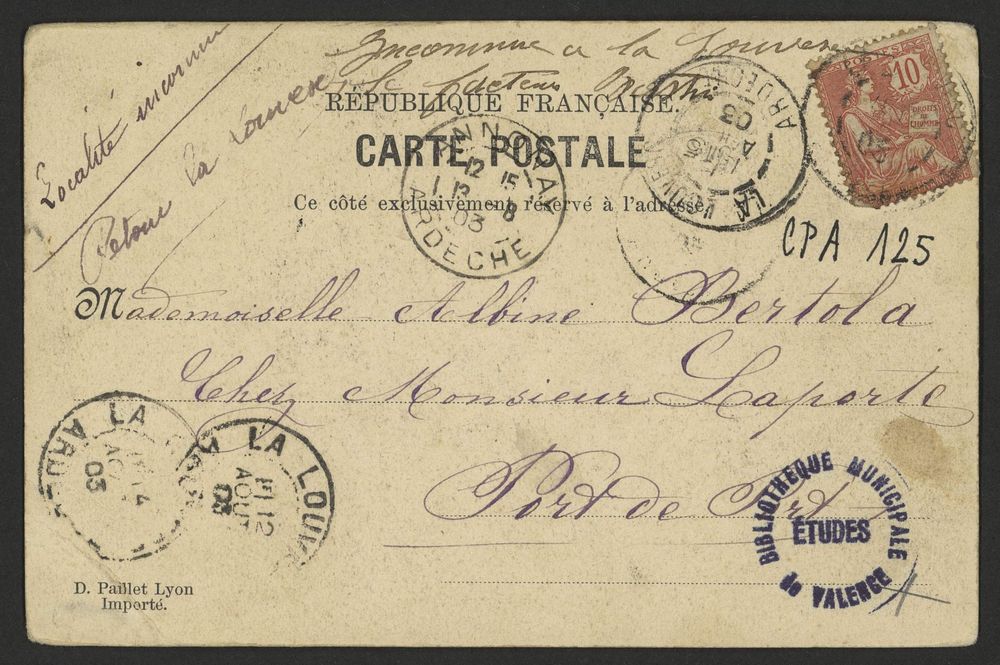 Inconnue a la Louvesc
le facteur
Localité inconnue
Retour la Louvesc
RÉPUBLIQUE FRANÇAISE.
CARTE POSTALE
Ce côté exclusivement réservé à l'adresse.
POSTES
10
DROITS DE L'HOMME
ANNONAY
12 15
13 8
03
ARDECHE
LA LOUVESC
AOUT
03
ARDECHE
CPA 125
Mademoiselle Albine Bertola
Chez Monsieur Laporte
Port de
LA
AOUT
03
LA LOUV
12
AOUT
03
BIBLIOTHEQUE MUNICIPALE
ÉTUDES
de VALENCE
D. Paillet Lyon
Importé.